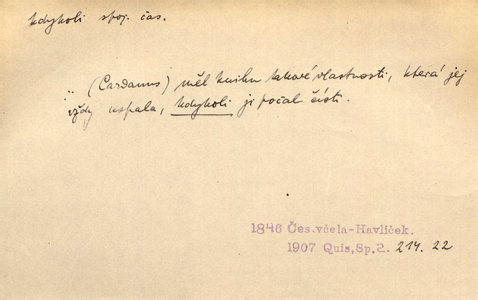 kdykoli spoj. čas.
.. (Cardanus) měl knihu takové vlastnosti, která jej
vždy uspala, kdykoli ji počal čísti.
1846 Čes.včela-Havlíček.
1907 Quis,Sp.2. 214. 22